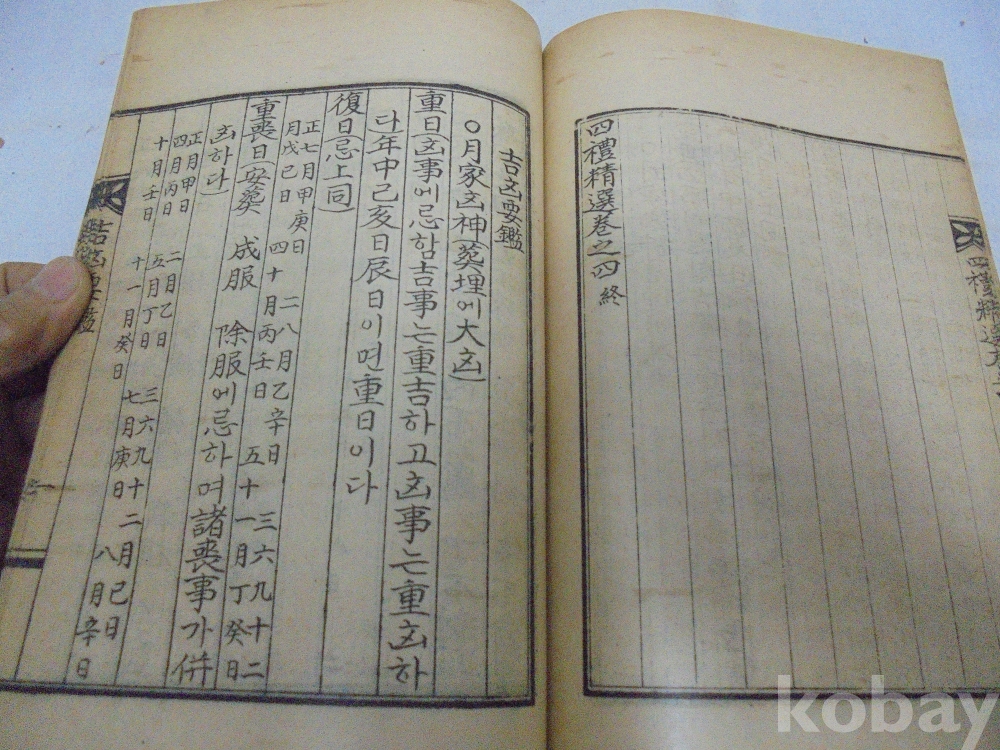 四禮精選
四禮精選卷之四 終
吉凶要鑑
○月家凶神(葬埋에大凶)
重日(凶事에忌함吉事는重吉하고凶事는重凶하
다年中己亥日辰日이면重日이다
復日(忌上同)
正七月甲庚日 二八月乙辛日 三六九十二
月戊己日 四十月丙壬日 五十一月丁癸日
重喪日(安葬 成服 除服에忌하며諸喪事가倂
凶하다)
正月甲日 二月乙日 三六九十二月己日
四月丙日 五月丁日 七月庚日 八月辛日
十月壬日 十一月癸日
吉凶要鑑
kobay